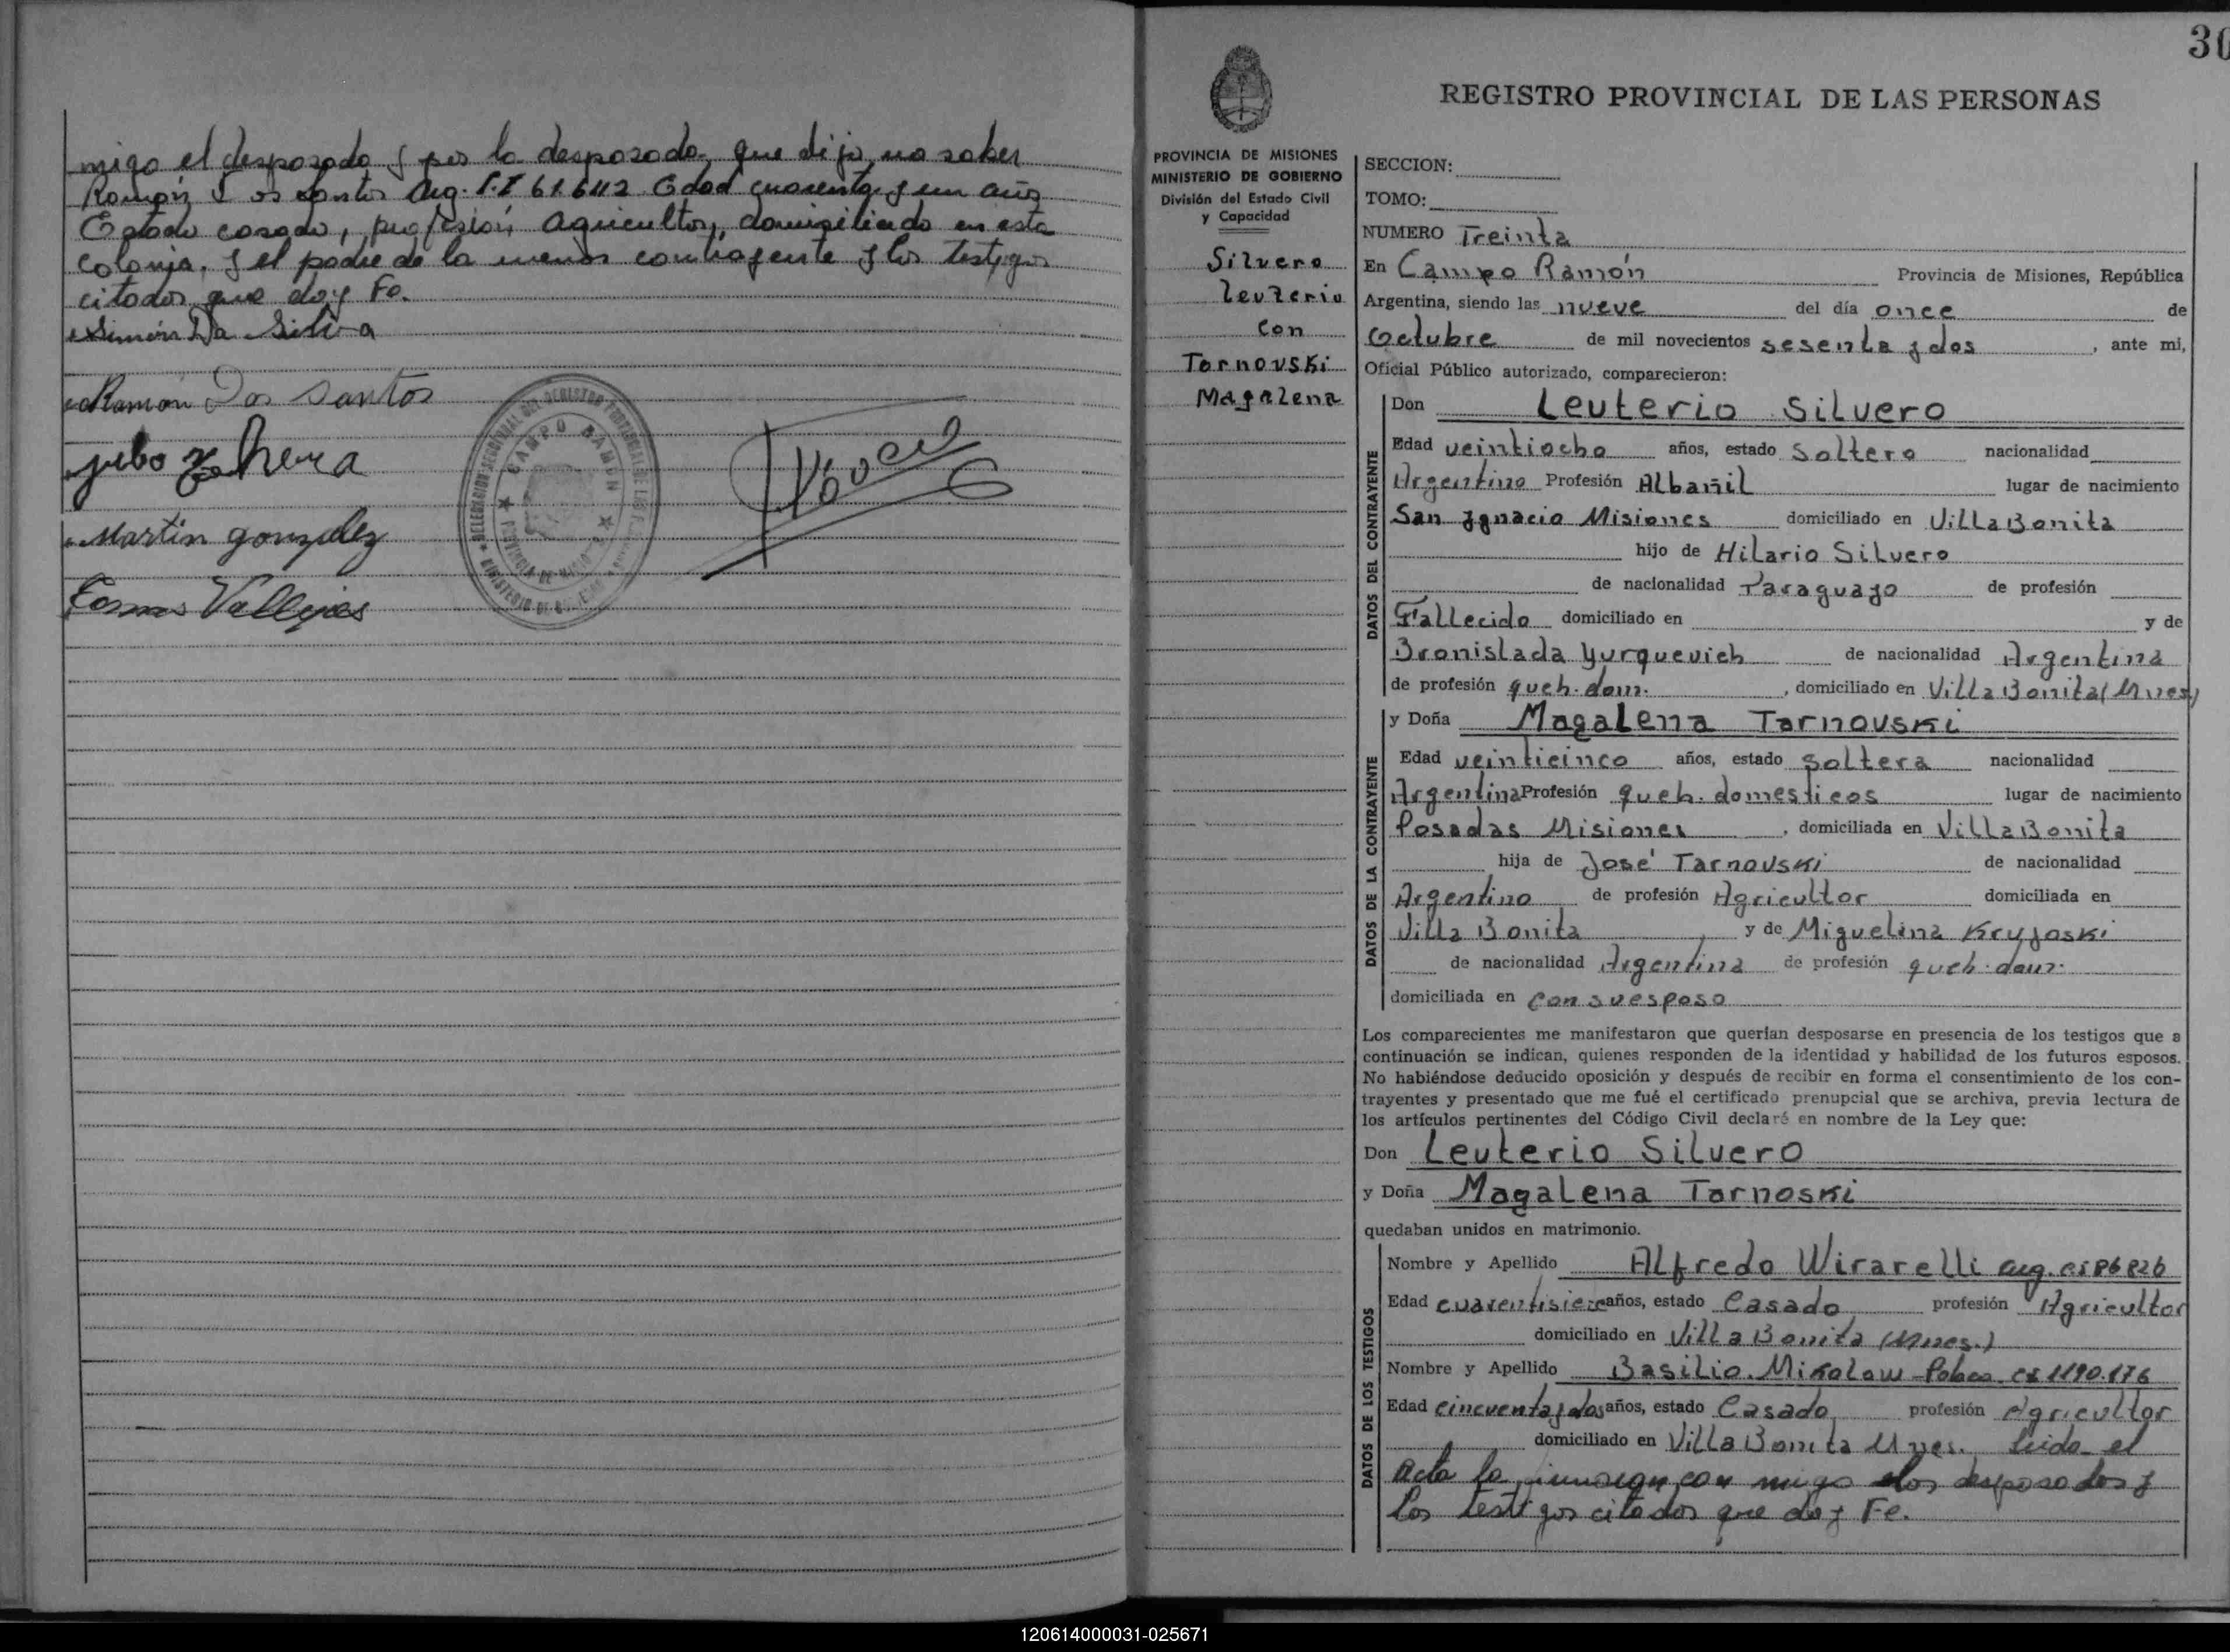 migo el desposado y por la desposada, que dijo no saber
Ramón Dos Santos Arg. C.I 616112 Edad cuarenta y un años
Estado casado, profesión agricultor, domiciliado en esta
colonia. y el padre de la menor contrayente y los testigos
citados que doy Fe.
Simón Da Silva
Ramón Dos Santos
Martin gonzalez
Vallejos
CAMPO RAMON
30
REGISTRO PROVINCIAL DE LAS PERSONAS
PROVINCIA DE MISIONES
MINISTERIO DE GOBIERNO
División del Estado Civil
y Capacidad
Silvero
Leuterio
con
Tarnovski
Magalena
SECCION:
TOMO:
NUMERO Treinta
En Campo Ramón Provincia de Misiones, República
Argentina, siendo las nueve del día once de
Octubre de mil novecientos sesenta y dos, ante mi,
Oficial Público autorizado, comparecieron:
DATOS DEL CONTRAYENTE
Don Leuterio Silvero
Edad veintiocho años, estado Soltero nacionalidad
Argentino Profesión Albañil lugar de nacimiento
San Ignacio Misiones domiciliado en Villa Bonita
hijo de Hilario Silvero
de nacionalidad Paraguayo de profesión
Fallecido domiciliado en y de
Bronislada Yurquevich de nacionalidad Argentina
de profesión queh. dom. , domiciliado en Villa Bonita (Mnes)
DATOS DE LA CONTRAYENTE
y Doña Magalena Tarnovski
Edad veinticinco años, estado Soltera nacionalidad
Argentina Profesión queh. domesticos lugar de nacimiento
Posadas Misiones , domiciliada en Villa Bonita
hija de José Tarnovski de nacionalidad
Argentino de profesión Agricultor domiciliada en
Villa Bonita y de Miguelina Kryjoski
de nacionalidad Argentina de profesión queh. dom.
domiciliada en con su esposo
Los comparecientes me manifestaron que querían desposarse en presencia de los testigos que a
continuación se indican, quienes responden de la identidad y habilidad de los futuros esposos.
No habiéndose deducido oposición y después de recibir en forma el consentimiento de los con-
trayentes y presentado que me fué el certificado prenupcial que se archiva, previa lectura de
los artículos pertinentes del Código Civil declaré en nombre de la Ley que:
Don Leuterio Silvero
y Doña Magalena Tarnoski
quedaban unidos en matrimonio.
DATOS DE LOS TESTIGOS
Nombre y Apellido Alfredo Wirarelli Arg. CI 86826
Edad cuarentisiete años, estado Casado profesión Agricultor
domiciliado en Villa Bonita (Mnes.)
Nombre y Apellido Basilio Mikolaw Polaco CI 1190.176
Edad cincuenta y dos años, estado Casado profesión Agricultor
domiciliado en Villa Bonita Mnes. Leida el
Acta la firmaron con migo los desposados y
los testigos citados que doy Fe.
120614000031-025671